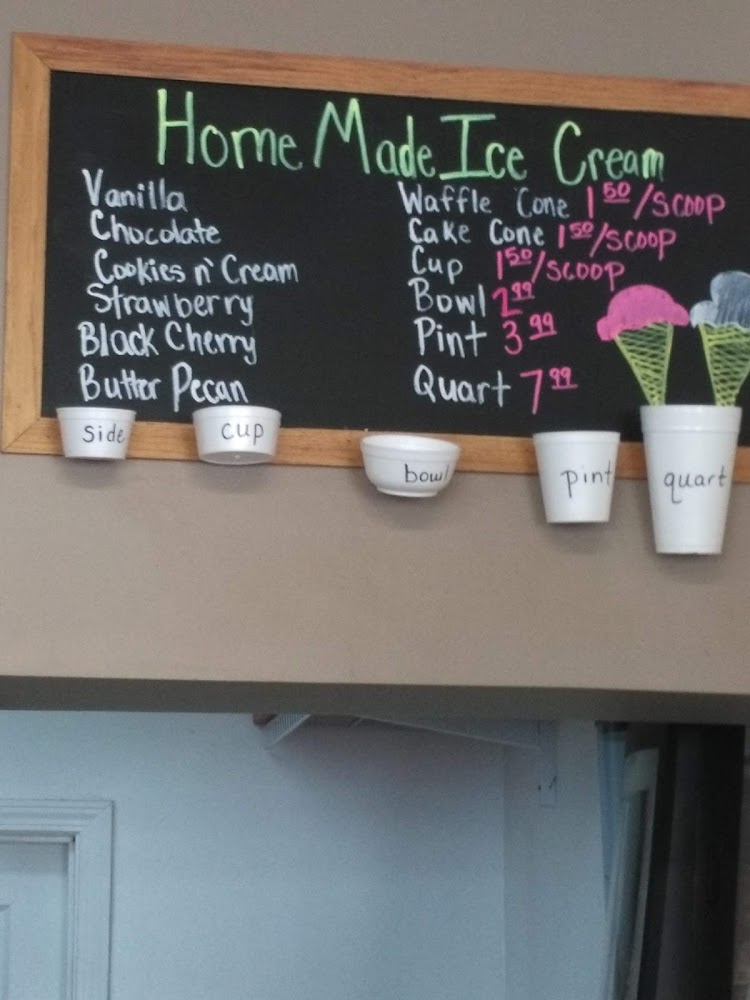 Home Made Ice Cream
Vanilla
Chocolate
Cookies n' Cream
Strawberry
Black Cherry
Butter Pecan
Waffle Cone 1 50/scoop
Cake Cone 1 50/scoop
Cup 1 50/scoop
Bowl 2 99
Pint 3 99
Quart 7 99
side
cup
bowl
pint
quart